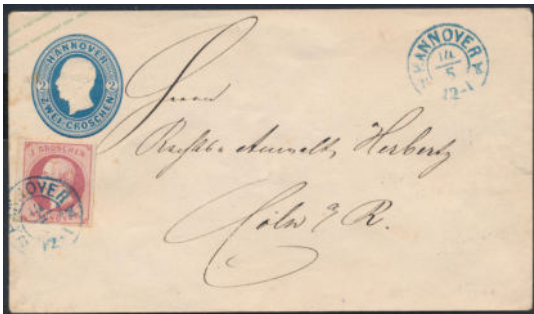 HANNOVER
2 2
ZWEI GROSCHEN
HANNOVER
14
5
12-1
1 GROSCHEN
HANNOVER
12-1
Herrn
Rechts-Anwalt Herbertz
Cöln a/R.